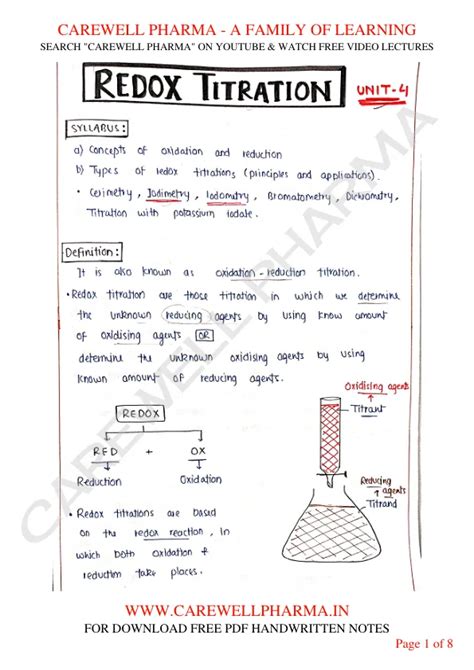 CAREWELL PHARMA - A FAMILY OF LEARNING
SEARCH "CAREWELL PHARMA" ON YOUTUBE & WATCH FREE VIDEO LECTURES
REDOX TITRATION
UNIT-4
SYLLABUS:
a) Concepts of oxidation and reduction
b) Types of redox titrations (principles and applications).
• Cerimetry, Iodimetry, Iodometry, Bromatometry, Dichrometry,
Titration with potassium iodate.
Definition:
It is also known as oxidation-reduction titration.
• Redox titration are those titration in which we determine
the unknown reducing agents by using know amount
of oxidising agents OR
determine the unknown oxidising agents by using
known amount of reducing agents.
REDOX
RED + OX
Reduction Oxidation
Oxidising agents
Titrant
Reducing agents
Titrand
• Redox titrations are based
on the redox reaction, in
which both oxidation &
reduction take places.
CAREWELL PHARMA
WWW.CAREWELLPHARMA.IN
FOR DOWNLOAD FREE PDF HANDWRITTEN NOTES
Page 1 of 8